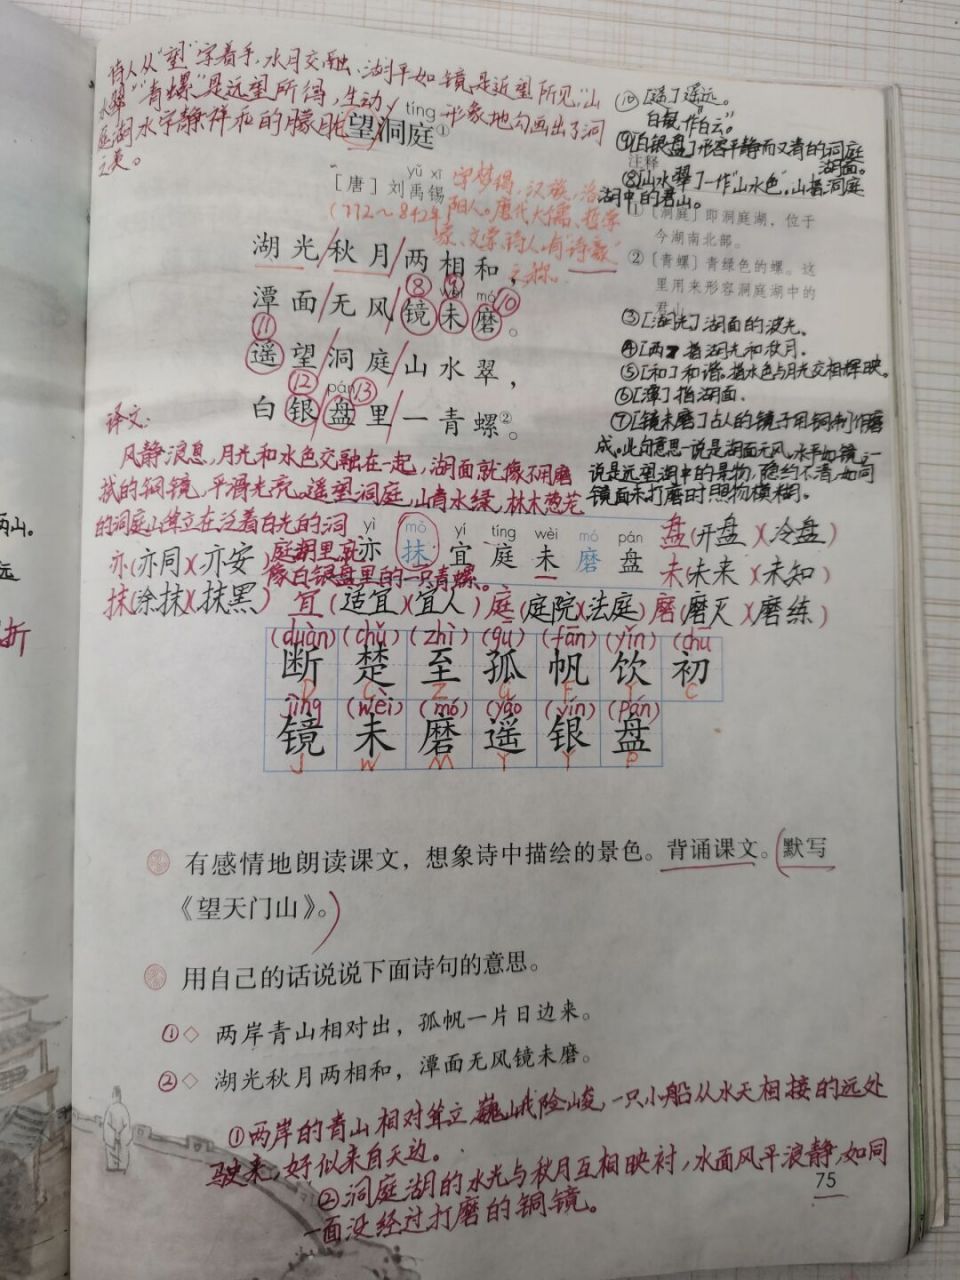 诗人从"望"字着手,水月交融、湖平如镜,是近望所见,"山
水翠""青螺"是远望所得,生动、形象地勾画出了洞
庭湖水宁静祥和的朦胧
之美。
tíng
望洞庭①
yǔ xī
[唐]刘禹锡
字梦得,汉族,洛
(772~842年)阳人。唐代大儒、哲学
家、文学、诗人,有"诗豪"
之称。
湖光/秋月/两相和,
⑧ ⑨ ⑩
wèi mó
潭面/无风/镜未磨。
⑪
遥望洞庭/山水翠,
⑫ pán ⑬
白银盘里/一青螺②。
⑩[遥]遥远。
白银,作白云。
⑨[白银盘]形容平静而又清的洞庭
湖面。
注释
⑧[山水翠]一作"山水色"。山指洞庭
湖中的君山。
①〔洞庭〕即洞庭湖,位于
今湖南北部。
②〔青螺〕青绿色的螺。这
里用来形容洞庭湖中的
君山。
③[湖光]湖面的波光。
④[两]指湖光和秋月.
⑤[和]和谐。指水色与月光交相辉映。
⑥[潭]指湖面.
⑦[镜未磨]古人的镜子用铜制作磨
成。此句意思一说是湖面无风,水平如镜;一
说是远望湖中的景物,隐约不清,如同
镜面未打磨时照物模糊。
译文:
风静浪息,月光和水色交融在一起,湖面就像不用磨
拭的铜镜,平滑光亮。遥望洞庭,山青水绿,林木葱茏
的洞庭山耸立在泛着白光的洞
庭湖里,就
像白银盘里的一只青螺。
yì mǒ yí tíng wèi mó pán
亦 抹 宜 庭 未 磨 盘
盘(开盘)(冷盘)
亦(亦同)(亦安)
未(未来)(未知)
抹(涂抹)(抹黑) 宜(适宜)(宜人) 庭(庭院)(法庭) 磨(磨灭)(磨练)
(duàn)(chǔ)(zhì)(gū)(fān)(yǐn)(chū)
断 楚 至 孤 帆 饮 初
D C Z G F Y C
jìng (wèi) (mó) (yáo) (yín) (pán)
镜 未 磨 遥 银 盘
J W M Y Y P
有感情地朗读课文,想象诗中描绘的景色。背诵课文。(默写
《望天门山》。)
用自己的话说说下面诗句的意思。
①◇ 两岸青山相对出,孤帆一片日边来。
②◇ 湖光秋月两相和,潭面无风镜未磨。
①两岸的青山相对耸立,巍峨险峻,一只小船从水天相接的远处
驶来,好似来自天边。
②洞庭湖的水光与秋月互相映衬,水面风平浪静,如同
一面没经过打磨的铜镜。
75
两山。
远
折